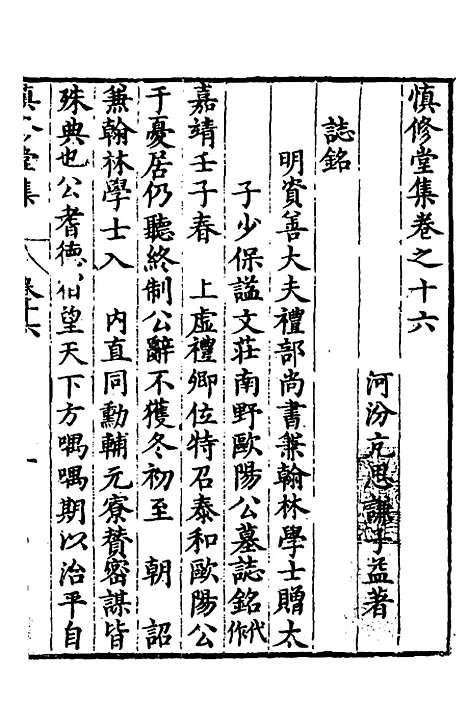 慎修堂集卷之十六
河汾亢思謙子益著
誌銘
明資善大夫禮部尚書兼翰林學士贈太
子少保諡文莊南野歐陽公墓誌銘代作
嘉靖壬子春　上虛禮卿位特召泰和歐陽公
于憂居仍聽終制公辭不獲冬初至　朝　詔
兼翰林學士入　內直同勳輔元寮贊密謀皆
殊典也公耆德宿望天下方喁喁期以治平自
慎修堂集　卷十六　一